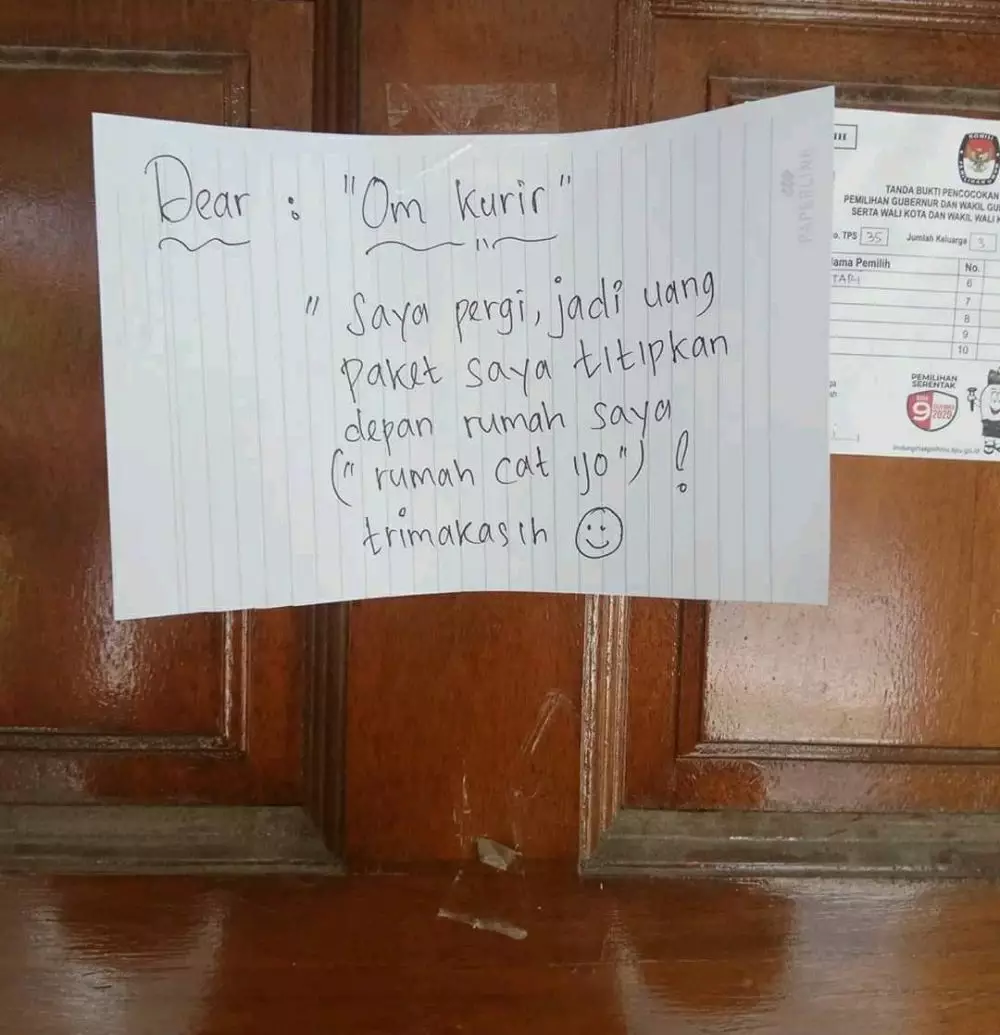 Dear : "Om kurir"
" Saya pergi, jadi uang
paket saya titipkan
depan rumah saya
(" rumah cat ijo") !
trimakasih
PAPERLINE
TANDA BUKTI PENCOCOKAN
PEMILIHAN GUBERNUR DAN WAKIL GU
SERTA WALI KOTA DAN WAKIL WALI K
o. TPS 35 Jumlah Keluarga 3
ama Pemilih No.
6
7
8
9
10
PEMILIHAN
SERENTAK
9
2020